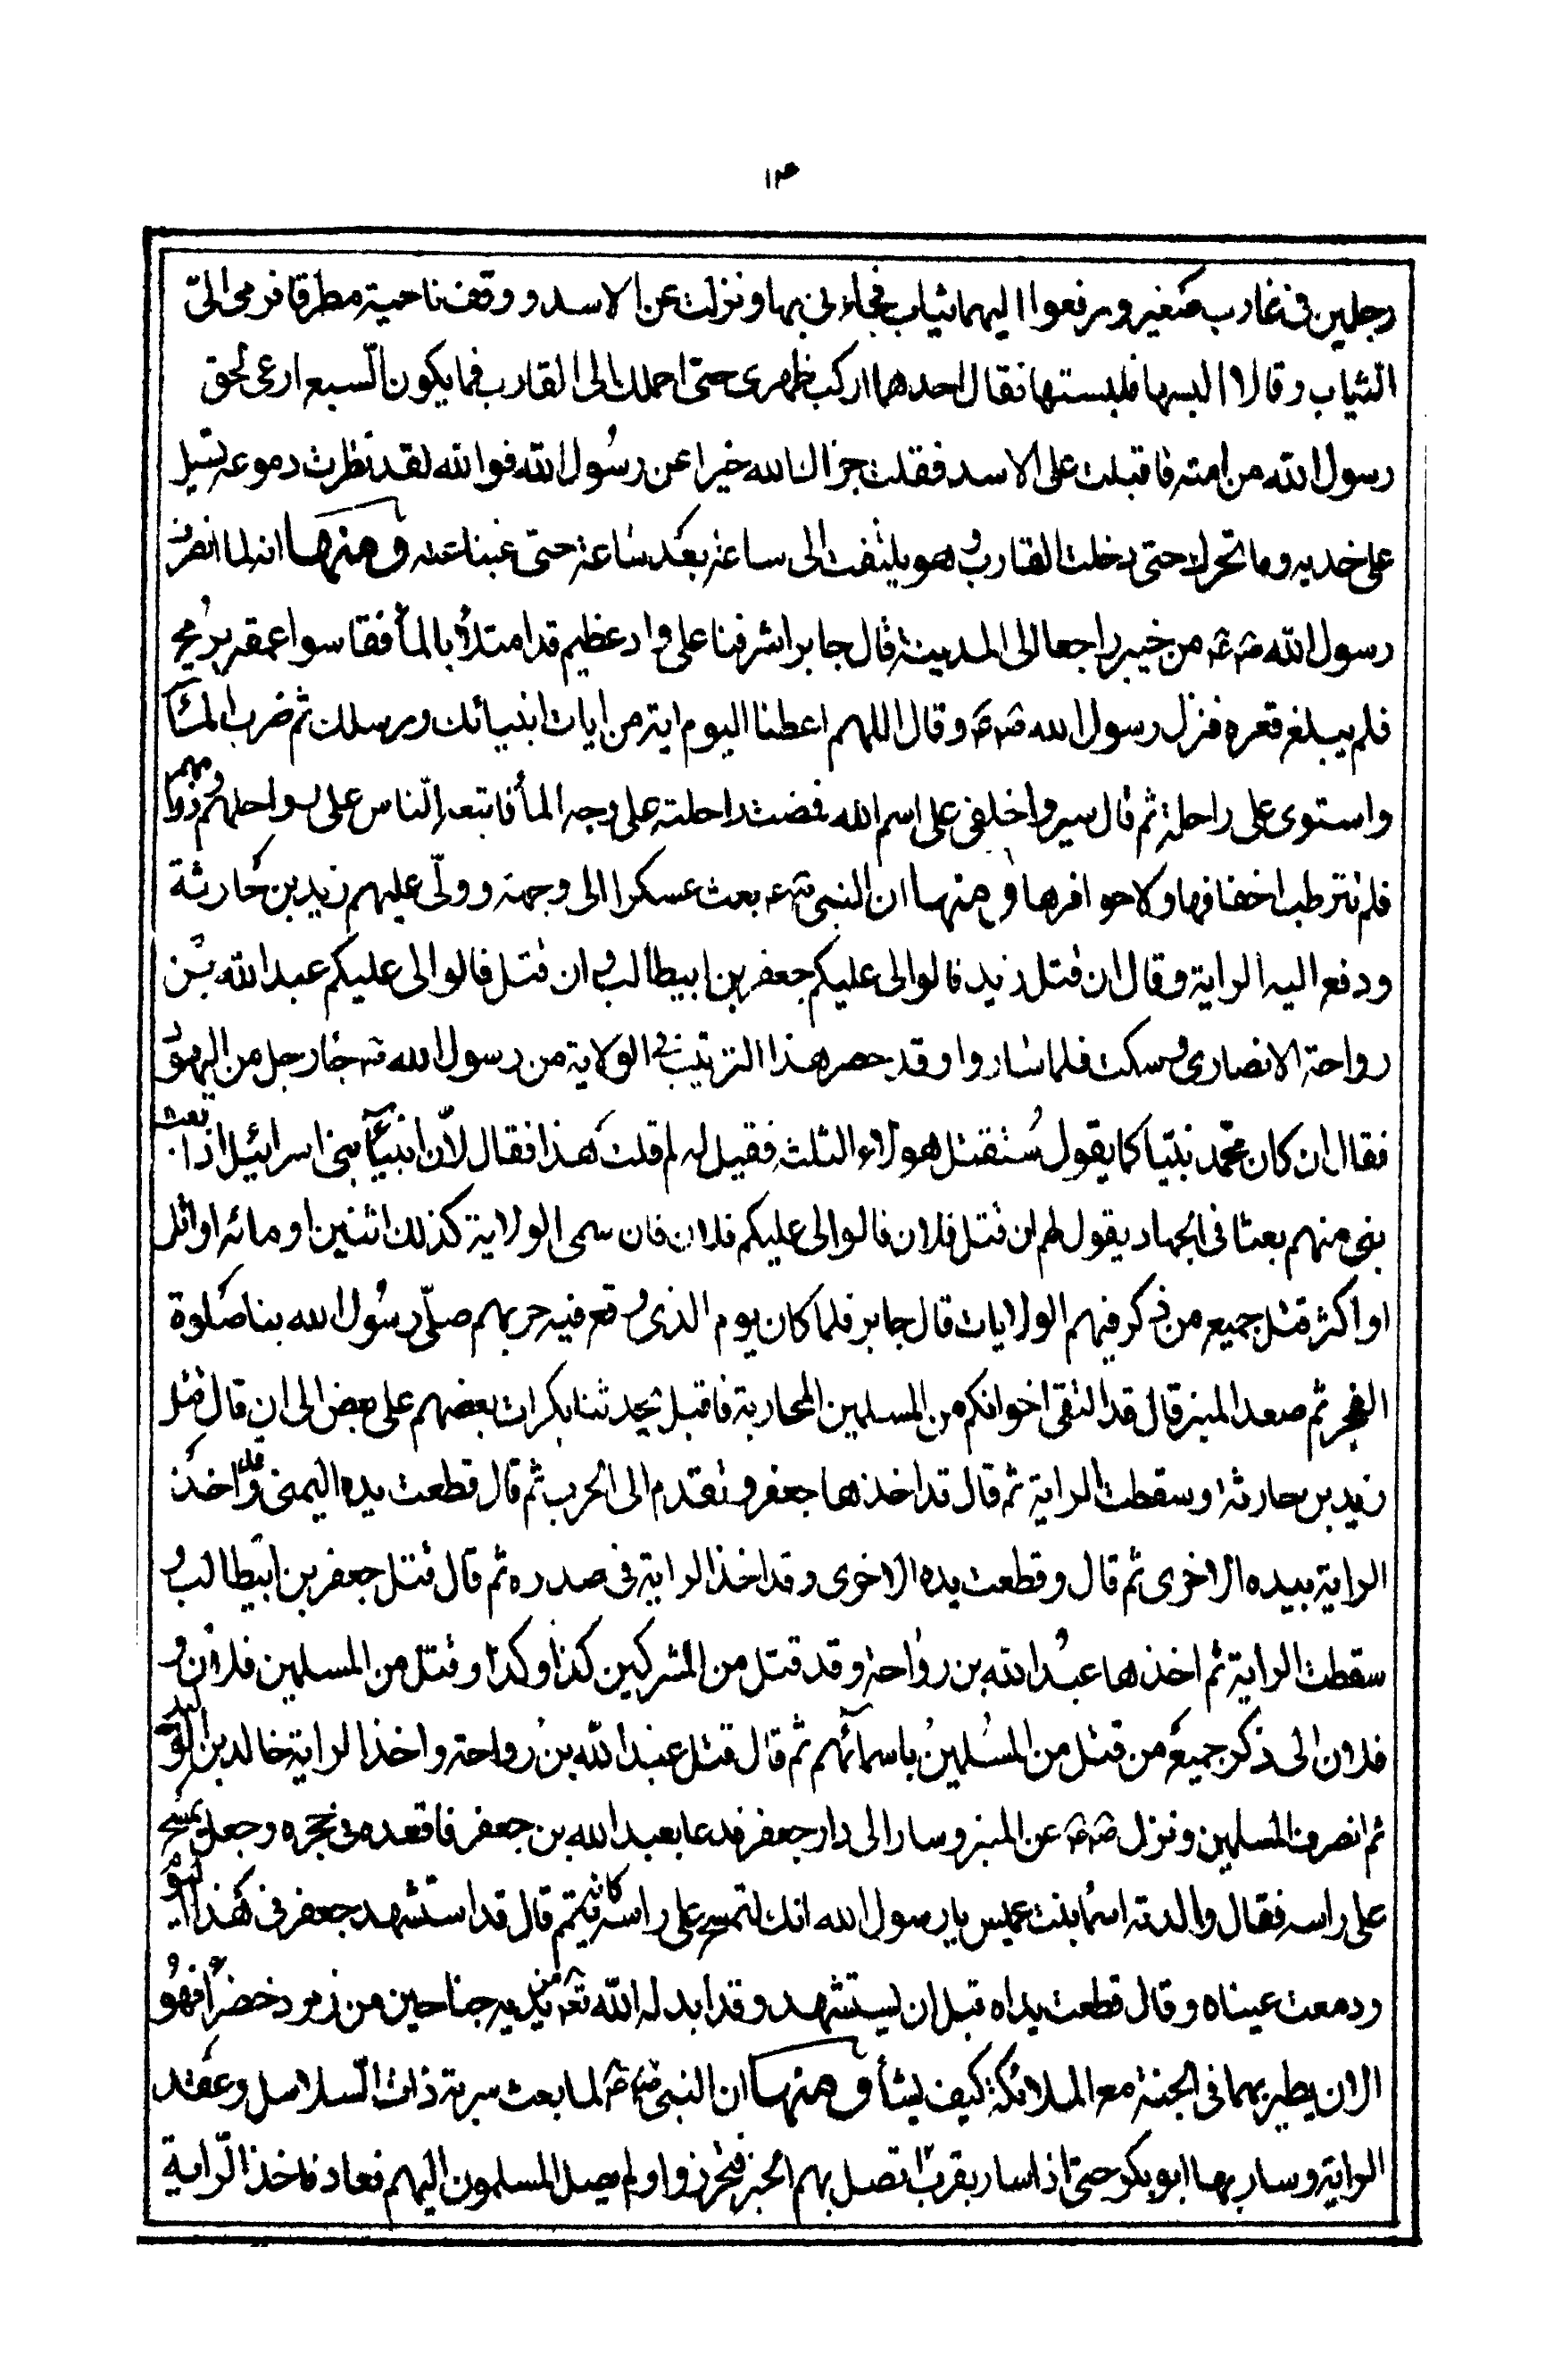 ١٢۴
رجلين فى غارب صغير ورفعوا اليهما ثياب فجاؤنى بها ونزلت عن الاسد ووقف ناحية مطرقا فرمى الىّ
الثياب وقالا البسها فلبستها فقال احدهما اركب ظهرى حتى احملك الى القارب فما يكون السبع ارعى لحق
رسول الله من امته فاقبلت على الاسد فقلت جزاك الله خيرا عن رسول الله فوالله لقد نظرت دموعه تسيل
على خديه وما تحرك حتى دخلت القارب وهو يلتفت الى ساعة بعد ساعة حتى غبنا عنه ومنها انه لما انصرف
رسول الله من خيبر راجعا الى المدينة قال جابر اشرفنا على واد عظيم قد امتلأ بالمأ فقاسوا عمقه برمح
فلم يبلغ قعره فنزل رسول الله وقال اللهم اعطنا اليوم اية من ايات انبيائك ورسلك ثم ضرب المآ
واستوى على راحلة ثم قال سيروا خلفى على اسم الله فمضت راحلته على وجه المأ فاتبعه الناس على رواحلهم
فلم تترطب اخفافها ولا حوافرها ومنها ان النبى بعث عسكرا الى وجهة وولّى عليهم زيد بن حارثة
ودفع اليه الراية وقال ان قتل زيد فالوالى عليكم جعفر بن ابيطالب وان قتل فالوالى عليكم عبد الله بن
رواحة الانصارى وسكت فلما ساروا وقد حصر هذا الترتيب فى الولاية من رسول الله جاء رجل من اليهود
فقال ان كان محمد نبيّا كما يقول ستقتل هولاء الثلث فقيل له لم قلت هذا فقال لان انبيآء بنى اسرائيل اذا بعث
نبى منهم بعثا فى الجهاد يقول لهم ان قتل فلان فالوالى عليكم فلان فان سمى الولاية كذلك اثنين او مائه او اقل
او اكثر قتل جميع من ذكر فيهم الولايات قال جابر فلما كان يوم الذى وقع فيه حربهم صلّى رسول الله بنا صلوة
الفجر ثم صعد المنبر قال قد التقى اخوانكم من المسلمين المحاربة فاقبل يحدثنا بكرات بعضهم على بعض الى ان قال قتل
زيد بن حارثة وسقطت الراية ثم قال قد اخذها جعفر وتقدم الى الحرب ثم قال قطعت يده اليمنى وقد اخذ
الراية بيده الاخرى ثم قال وقطعت يده الاخرى وقد اخذ الراية فى صدره ثم قال قتل جعفر بن ابيطالب و
سقطت الراية ثم اخذها عبد الله بن رواحة وقد قتل من المشركين كذا وكذا وقتل من المسلمين فلان و
فلان الى ذكر جميع من قتل من المسلمين باسمائهم ثم قال قتل عبد الله بن رواحة واخذ الراية خالد بن الوليد
ثم انصرف المسلمين ونزل عن المنبر وسار الى دار جعفر فدعا بعبد الله بن جعفر فاقعده فى حجره وجعل يمسح
على راسه فقال والدته اسما بنت عميس يا رسول الله انك لتمسح على راسه كانه يتيم قال قد استشهد جعفر فى هذا اليوم
ودمعت عيناه وقال قطعت يداه قبل ان يستشهد وقد ابدله الله من يديه جناحين من زمرد خضر فهو
الان يطير بهما فى الجنة مع الملائكة كيف يشأ ومنها ان النبى لما بعث سرية ذات السلاسل وعقد
الراية وسار بها ابو بكر حتى اذا سار بقرب اتصل بهم الخبر فتحرزوا ولم يصل المسلمون اليهم فعاد فاخذ الراية